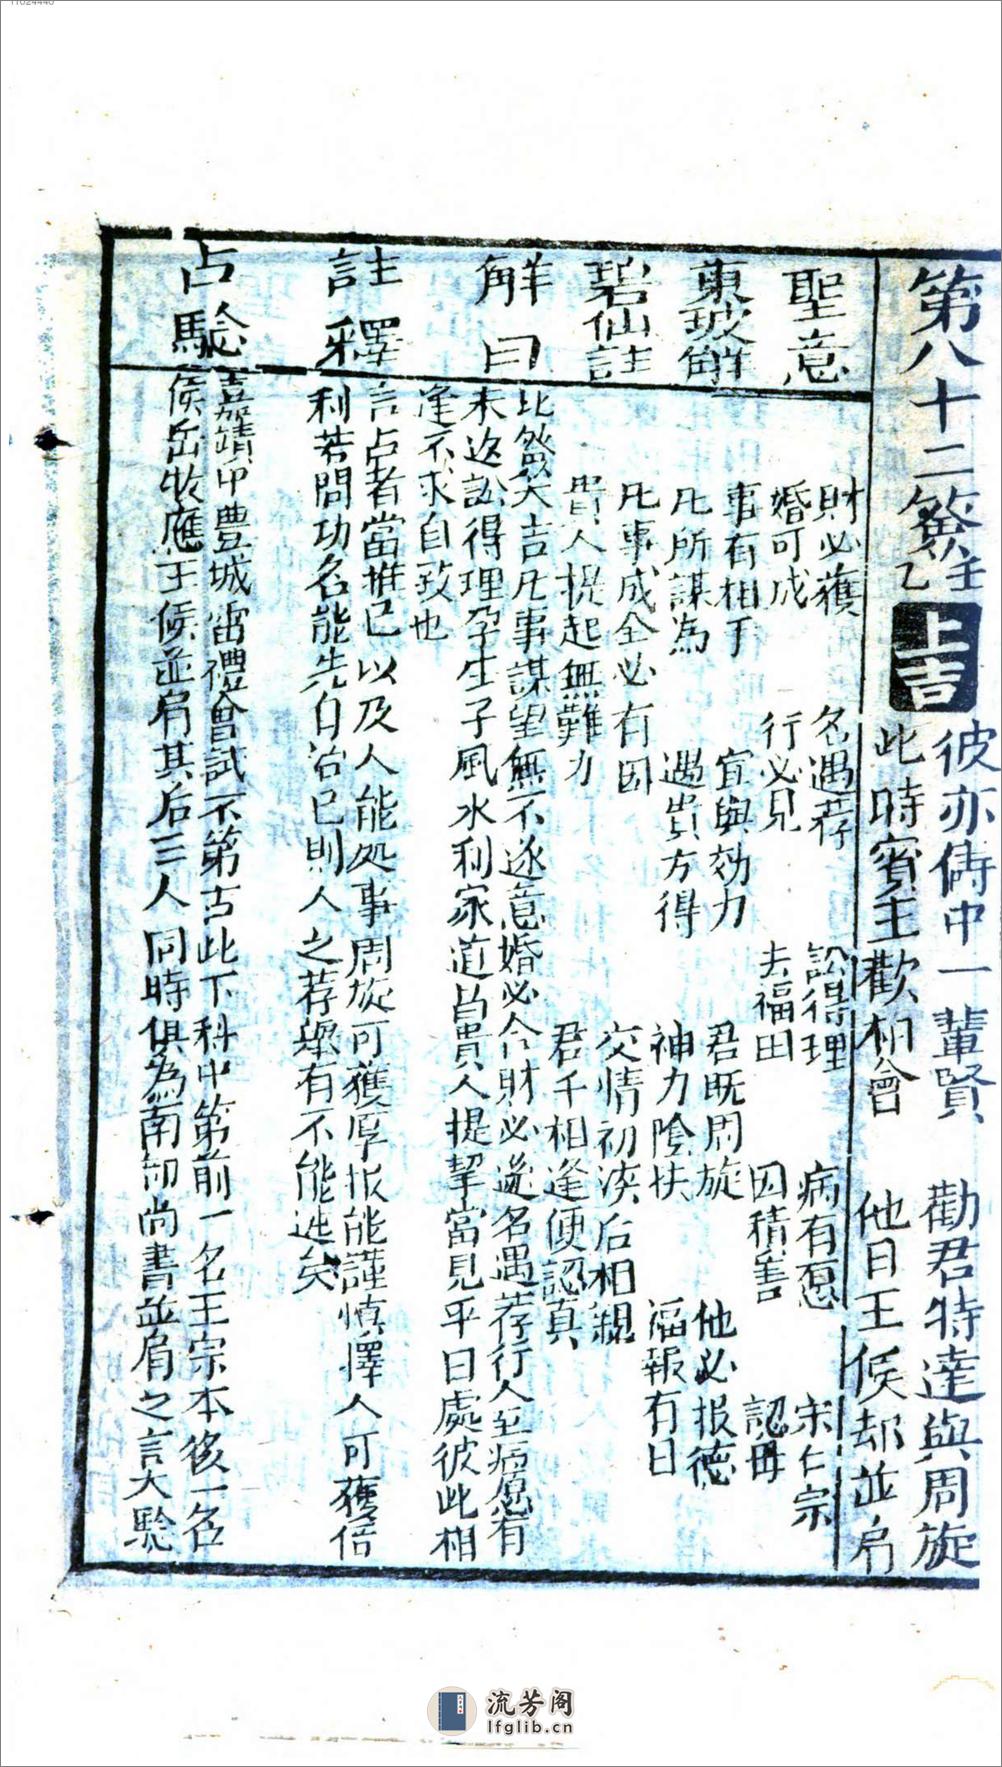 第八十二籤 壬乙 上吉
彼亦儔中一輩賢 勸君特達與周旋
此時賓主歡相會 他日王侯却並肩
聖意
財必獲 名遇荐 訟得理 病有愿 宋仁宗
婚可成 行必見 去福田 因積善 認母
東坡解
事有相于 宜與効力 君既周旋 他必报德
凡所謀為 遇貴方得 神力陰扶 福報有日
碧仙註
凡事成全必有因 交情初浃后相親
貴人提起無難力 君千相逢便認真
解曰
此簽大吉凡事謀望無不遂意婚必合財必遂名遇荐行人至病愿有
未返訟得理孕生子風水利家道昌貴人提挈當見平日處彼此相
逢不求自致也
註釋
言占者當推己以及人能処事周旋可獲厚报能謹慎擇人可獲倍
利若問功名能先自治己則人之荐梁有不能逃矣
占驗
嘉靖甲豊城雷禮會試不第占此下科中第前一名王宗本後一名
侯岳牧應王侯並肩其后三人同時俱為南部尚書並肩之言大驗
流芳阁
lfglib.cn